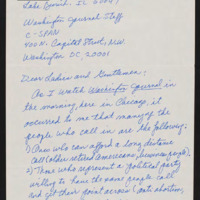 Lake Forest, IL
Washington Journal Staff
C-SPAN
400 N. Capitol Street, N.W.
Washington DC, 20001
Dear Ladies and Gentlemen:
As I watch Washington Journal in
the morning, here in Chicago, it
occurred to me that many of the
people who call in are the following:
1) Ones who can afford a long distance
call (other retired Americans, business people).
2) Those who represent a political party
willing to have the same people call
and get their point across (anti abortion,